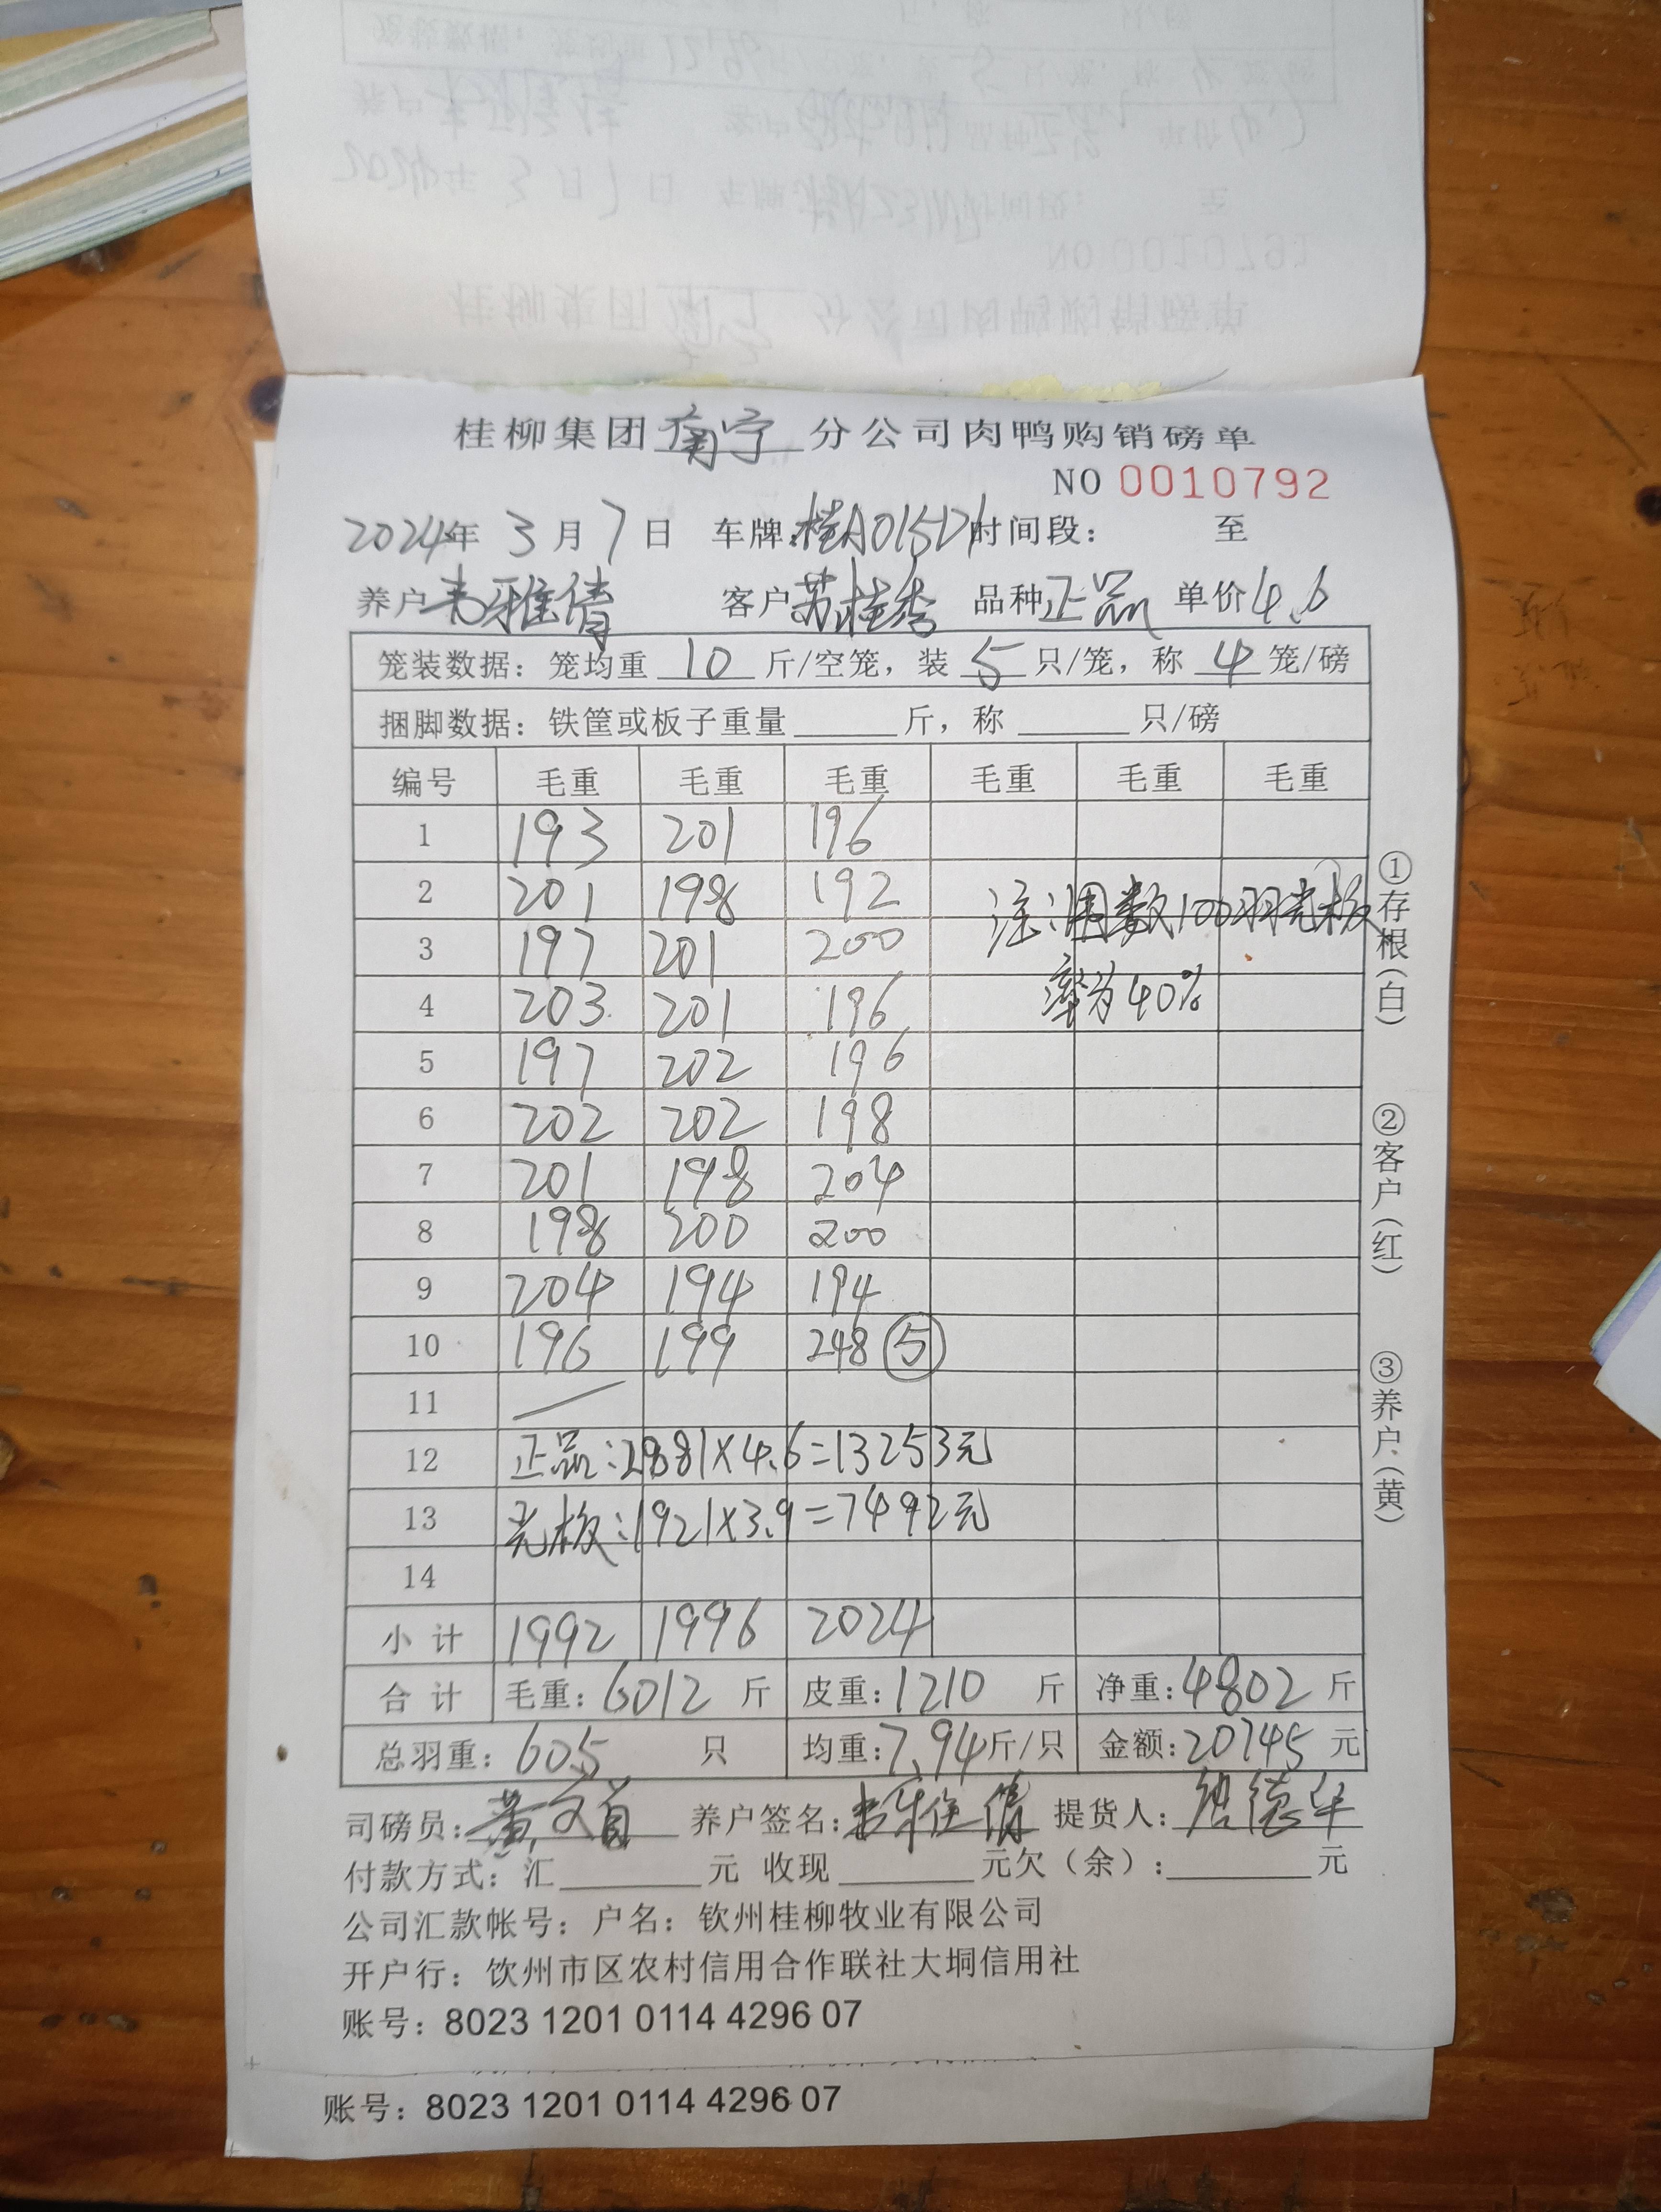 桂柳集团南宁分公司肉鸭购销磅单
NO 0010792
2024年 3月7日 车牌:桂A015D1时间段: 至
养户韦雅倩 客户苏桂秀 品种正品 单价4.6
笼装数据:笼均重 10 斤/空笼,装 5 只/笼,称 4 笼/磅
捆脚数据:铁筐或板子重量______斤,称______只/磅
编号 毛重 毛重 毛重 毛重 毛重 毛重
1 193 201 196
2 201 198 192 注:调数100羽光板
3 197 201 200
4 203 201 196 率为40%
5 197 202 196
6 202 202 198
7 201 198 204
8 198 200 200
9 204 194 194
10 196 199 248 ⑤
11
12 正品:2881×4.6=13253元
13 光板:1921×3.9=7492元
14
小计 1992 1996 2024
合计 毛重:6012 斤 皮重:1210 斤 净重:4802 斤
总羽重:605 只 均重:7.94斤/只 金额:20745 元
司磅员:黄 养户签名:韦雅倩 提货人:德华
付款方式:汇______元 收现______元欠(余):______元
公司汇款帐号:户名:钦州桂柳牧业有限公司
开户行:饮州市区农村信用合作联社大垌信用社
账号:8023 1201 0114 4296 07
①存根(白) ②客户(红) ③养户(黄)
账号:8023 1201 0114 4296 07